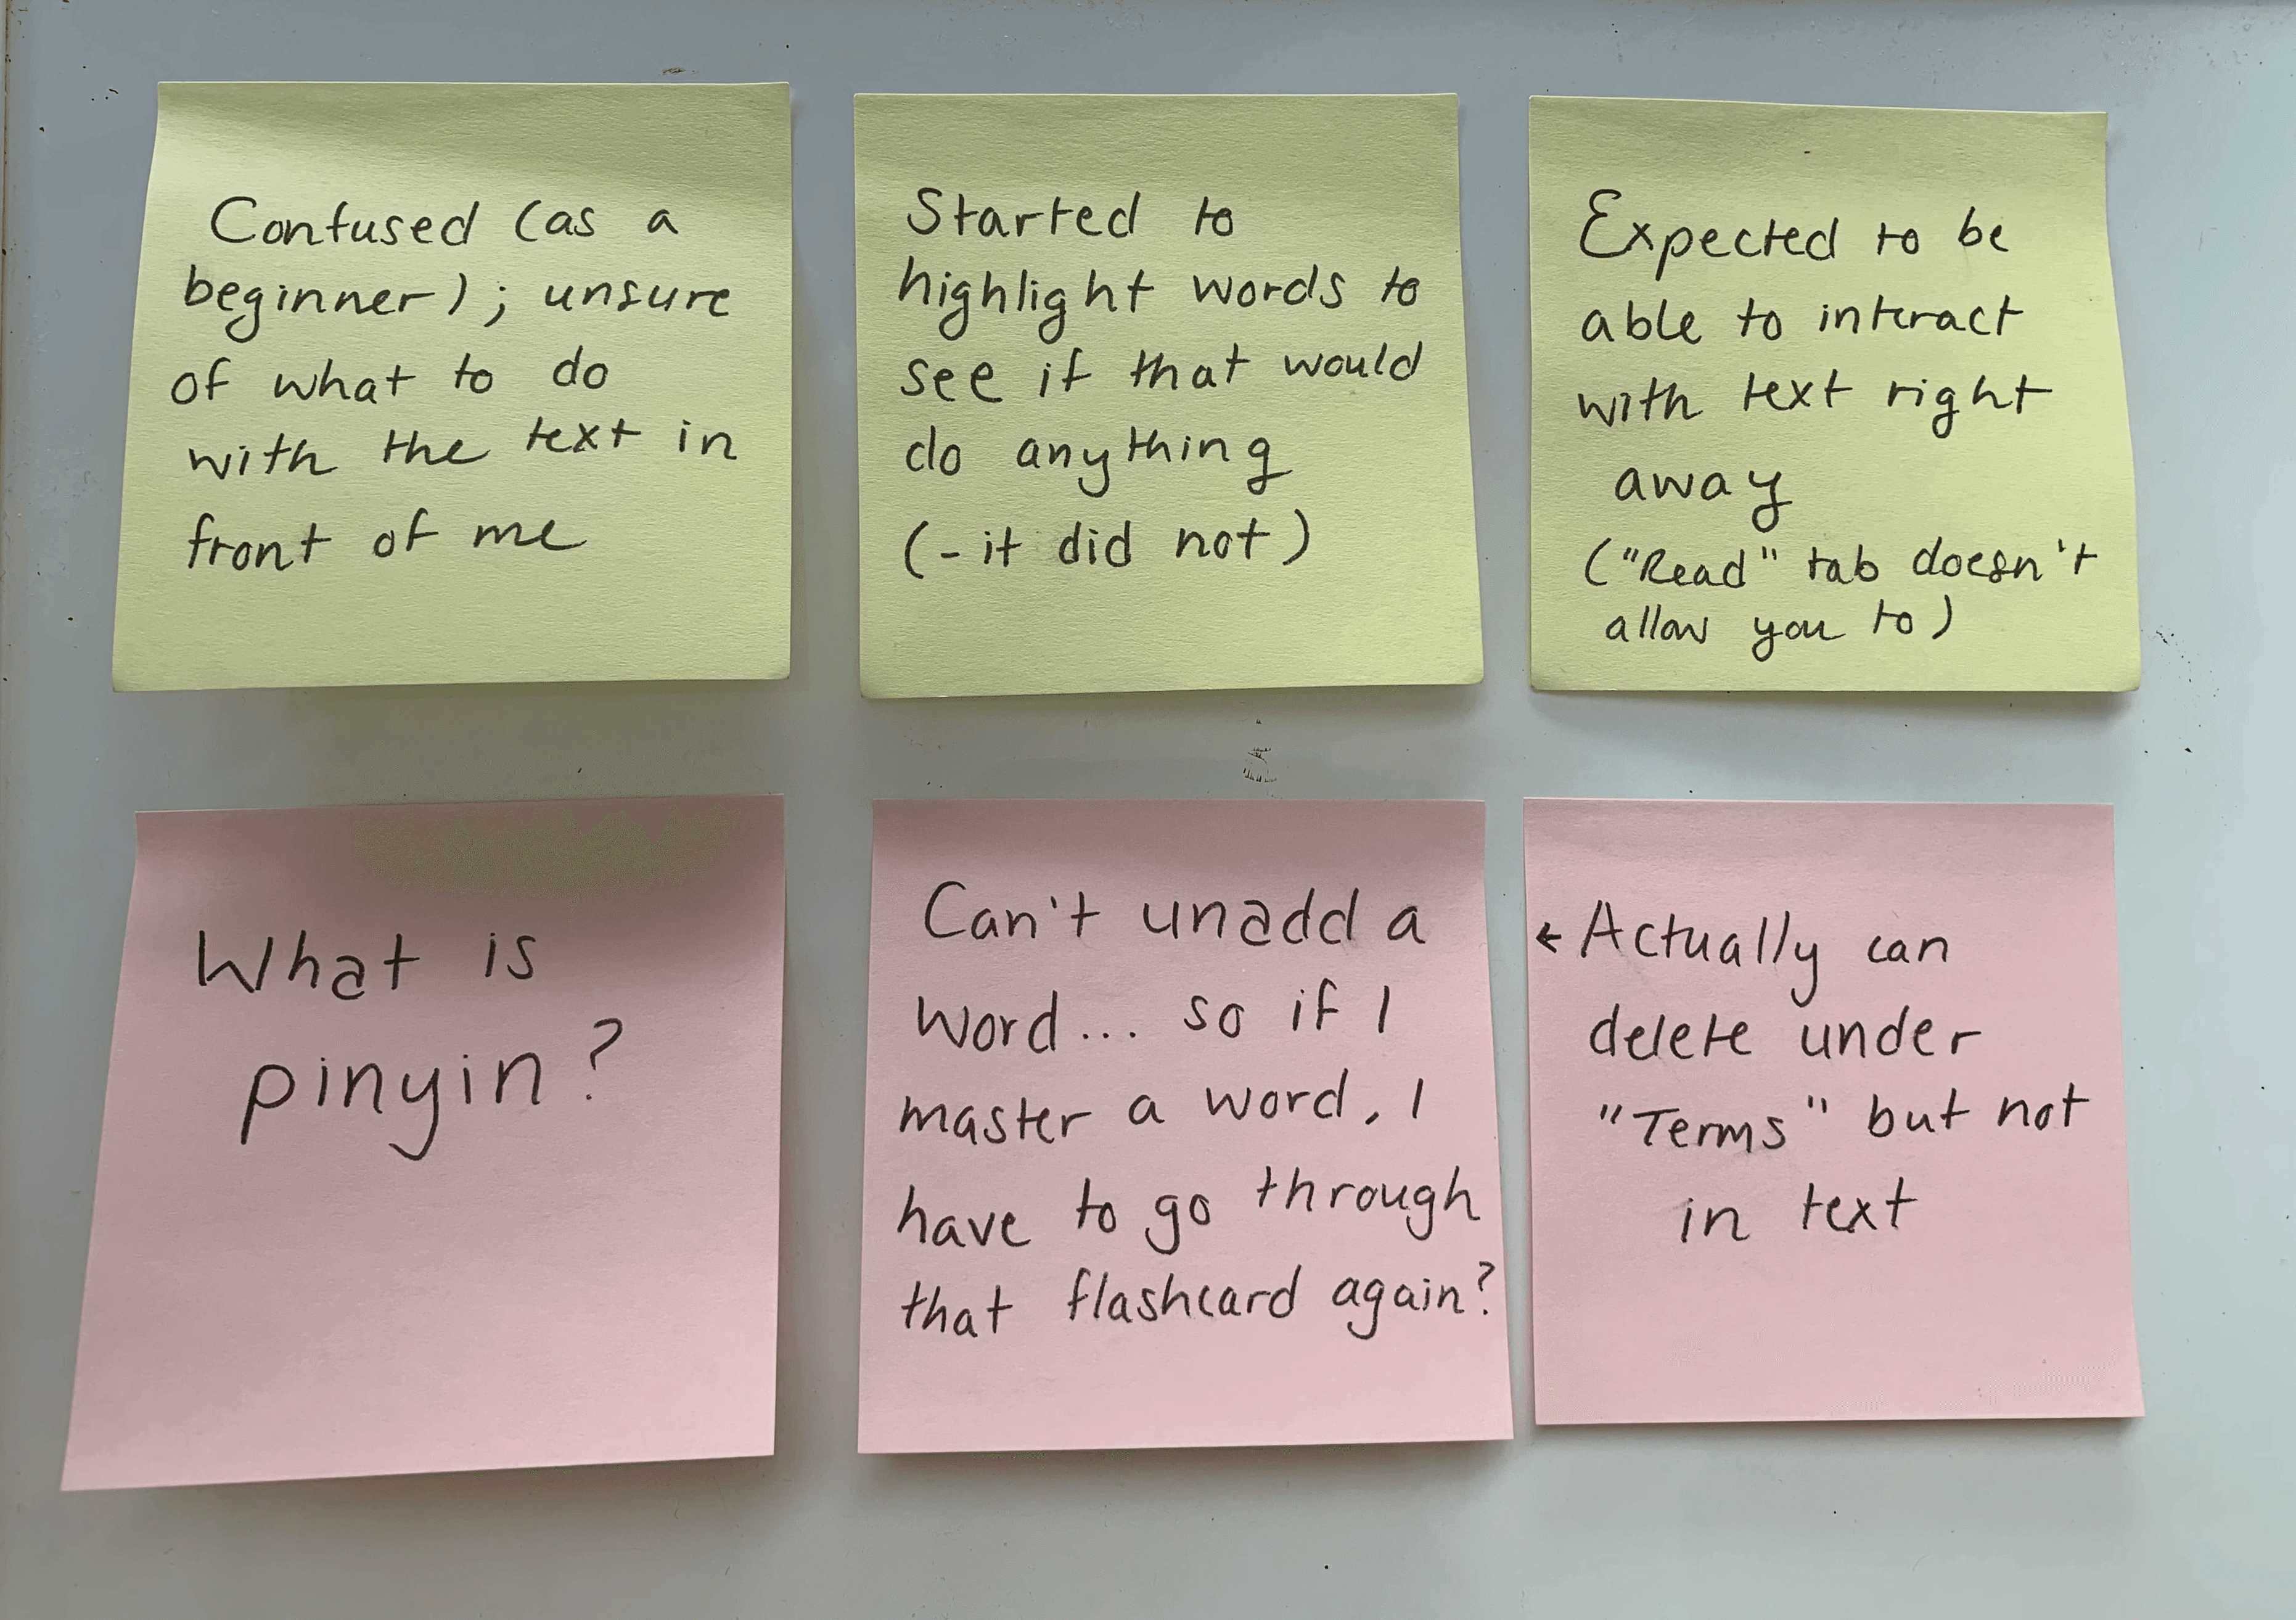 Confused (as a
beginner); unsure
of what to do
with the text in
front of me
Started to
highlight words to
see if that would
do anything
(- it did not)
Expected to be
able to interact
with text right
away
("Read" tab doesn't
allow you to)
What is
pinyin?
Can't unadd a
word... so if I
master a word, I
have to go through
that flashcard again?
← Actually can
delete under
"Terms" but not
in text